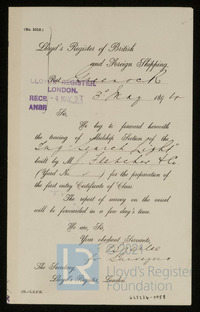 (No. 1018.)
Lloyd's Register of British
and Foreign Shipping,
Port Greenock
LLOYD'S REGISTER,
LONDON.
RECD 4 MAY
3rd May 189
Sir,
We beg to forward herewith
the tracing of Midship Section of the
built by M Fletcher & Co
(Yard No. ) for the preparation of
the first entry Certificate of Class.
The report of survey on the vessel
will be forwarded in a few day's time.
We are, Sir,
Your obedient Servants,
Surveyors
The Secretary,
Lloyd's Register, London.
Lloyd's Register
Foundation